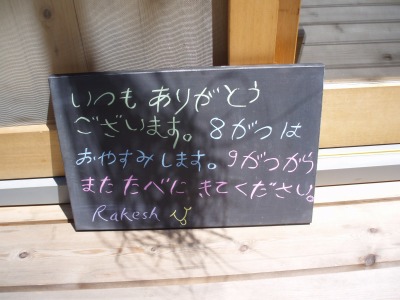 いつも ありがとう
ございます。 8がつは
おやすみします。 9がつから
また たべに きてください。
Rakesh